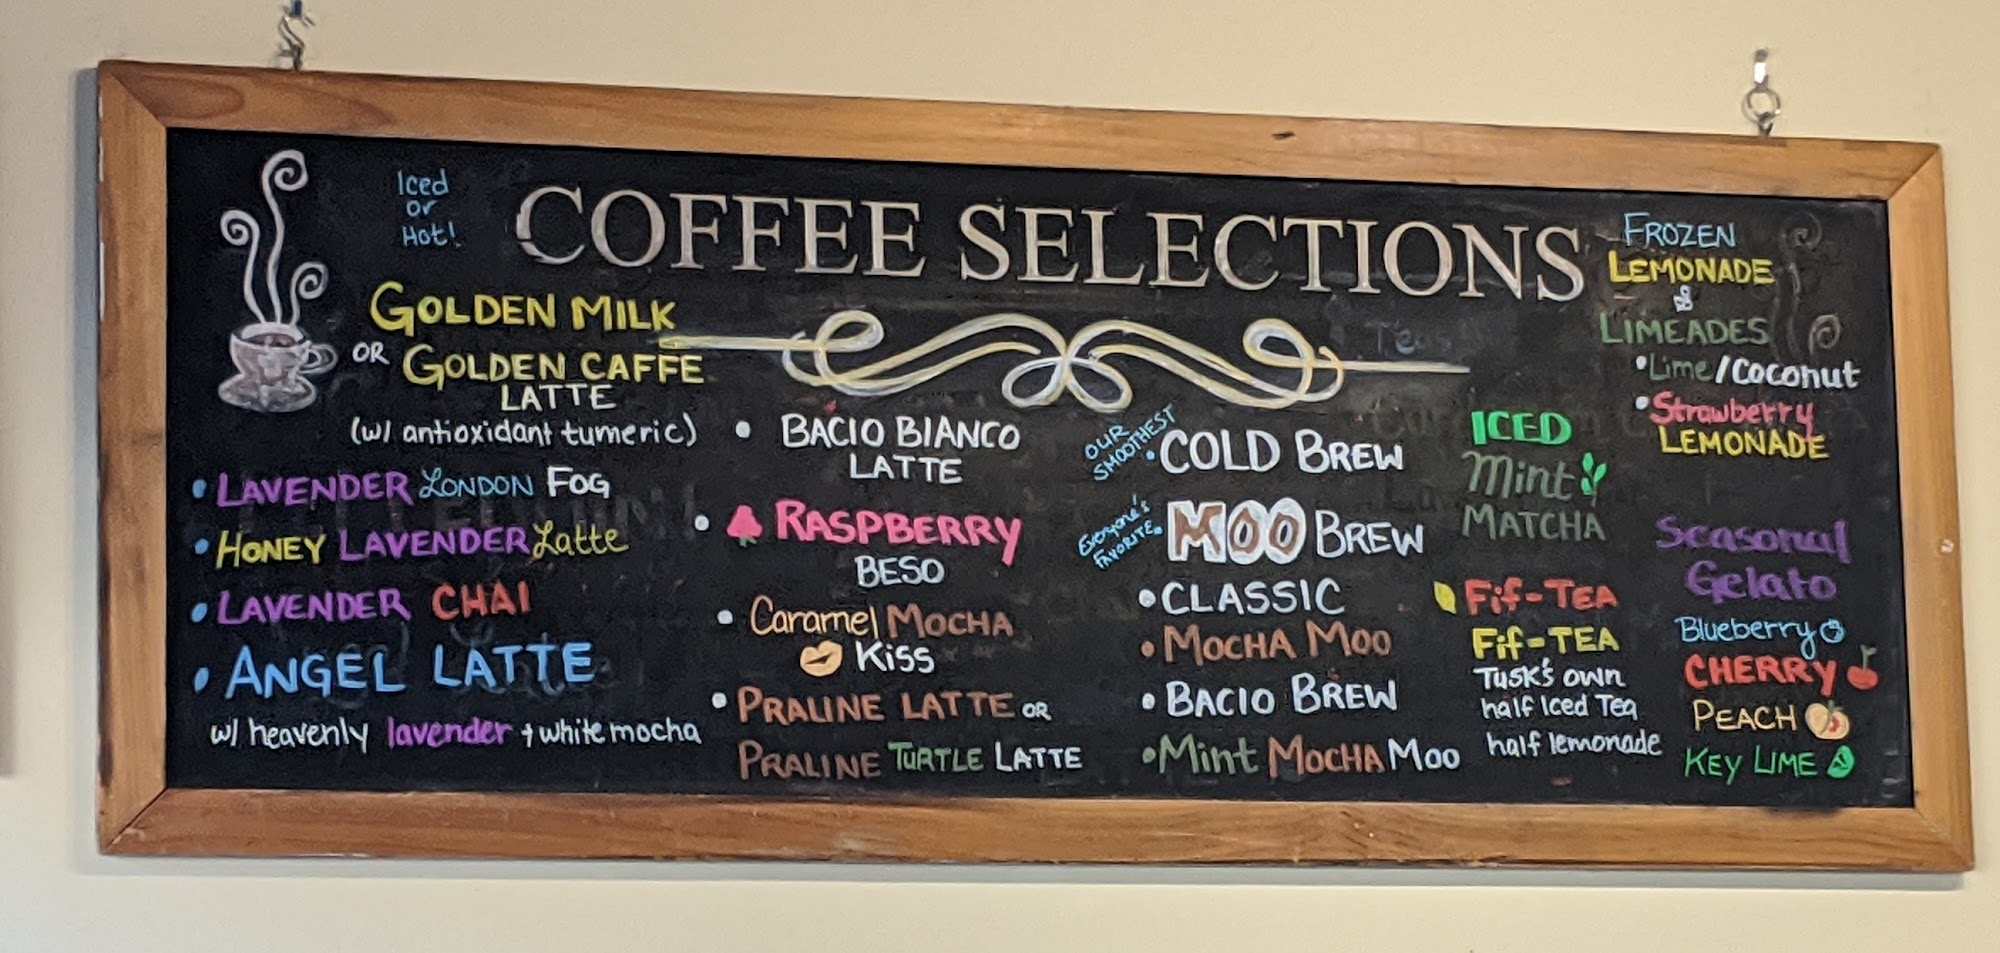 Iced
or
Hot!
COFFEE SELECTIONS
GOLDEN MILK
OR GOLDEN CAFFE
LATTE
(w/ antioxidant tumeric)
• LAVENDER LONDON FOG
• HONEY LAVENDER Latte
• LAVENDER CHAI
• ANGEL LATTE
w/ heavenly lavender + white mocha
• BACIO BIANCO
LATTE
• RASPBERRY
BESO
• Caramel MOCHA
Kiss
• PRALINE LATTE OR
PRALINE TURTLE LATTE
OUR
SMOOTHEST
• COLD BREW
Everyone's
FAVORITE.
MOO BREW
• CLASSIC
• MOCHA MOO
• BACIO BREW
• Mint MOCHA MOO
Teas
ICED
Mint
MATCHA
Fif-TEA
Fif-TEA
Tusk's own
half Iced Tea
half lemonade
FROZEN
LEMONADE
&
LIMEADES
• Lime/Coconut
• Strawberry
LEMONADE
Seasonal
Gelato
Blueberry
CHERRY
PEACH
KEY LIME